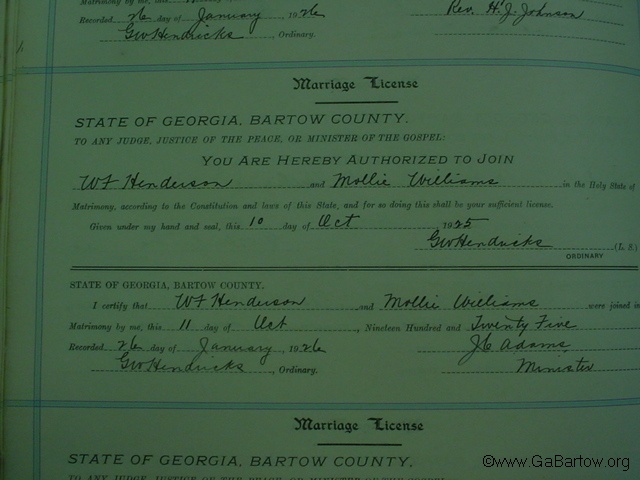 Matrimony by me, this
Rev. H. J. Johnson
Recorded 26 day of January, 1926
GW Hendricks, Ordinary.
Marriage License
STATE OF GEORGIA, BARTOW COUNTY.
TO ANY JUDGE, JUSTICE OF THE PEACE, OR MINISTER OF THE GOSPEL:
YOU ARE HEREBY AUTHORIZED TO JOIN
WF Henderson and Mollie Williams in the Holy State of
Matrimony, according to the Constitution and laws of this State, and for so doing this shall be your sufficient license.
Given under my hand and seal, this 10 day of Oct 1925
GW Hendricks (L. S.)
ORDINARY
STATE OF GEORGIA, BARTOW COUNTY.
I certify that WF Henderson and Mollie Williams were joined in
Matrimony by me, this 11 day of Oct, Nineteen Hundred and Twenty Five
Recorded 26 day of January, 1926 JC Adams
GW Hendricks, Ordinary. Minister
Marriage License
STATE OF GEORGIA, BARTOW COUNTY.
TO ANY JUDGE, JUSTICE OF THE PEACE, OR MINISTER OF THE GOSPEL:
©www.GaBartow.org